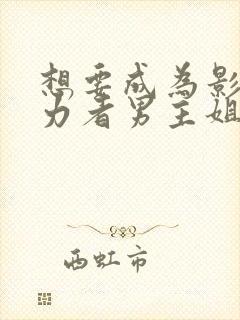 想要成为影
力者男主姐
西虹市